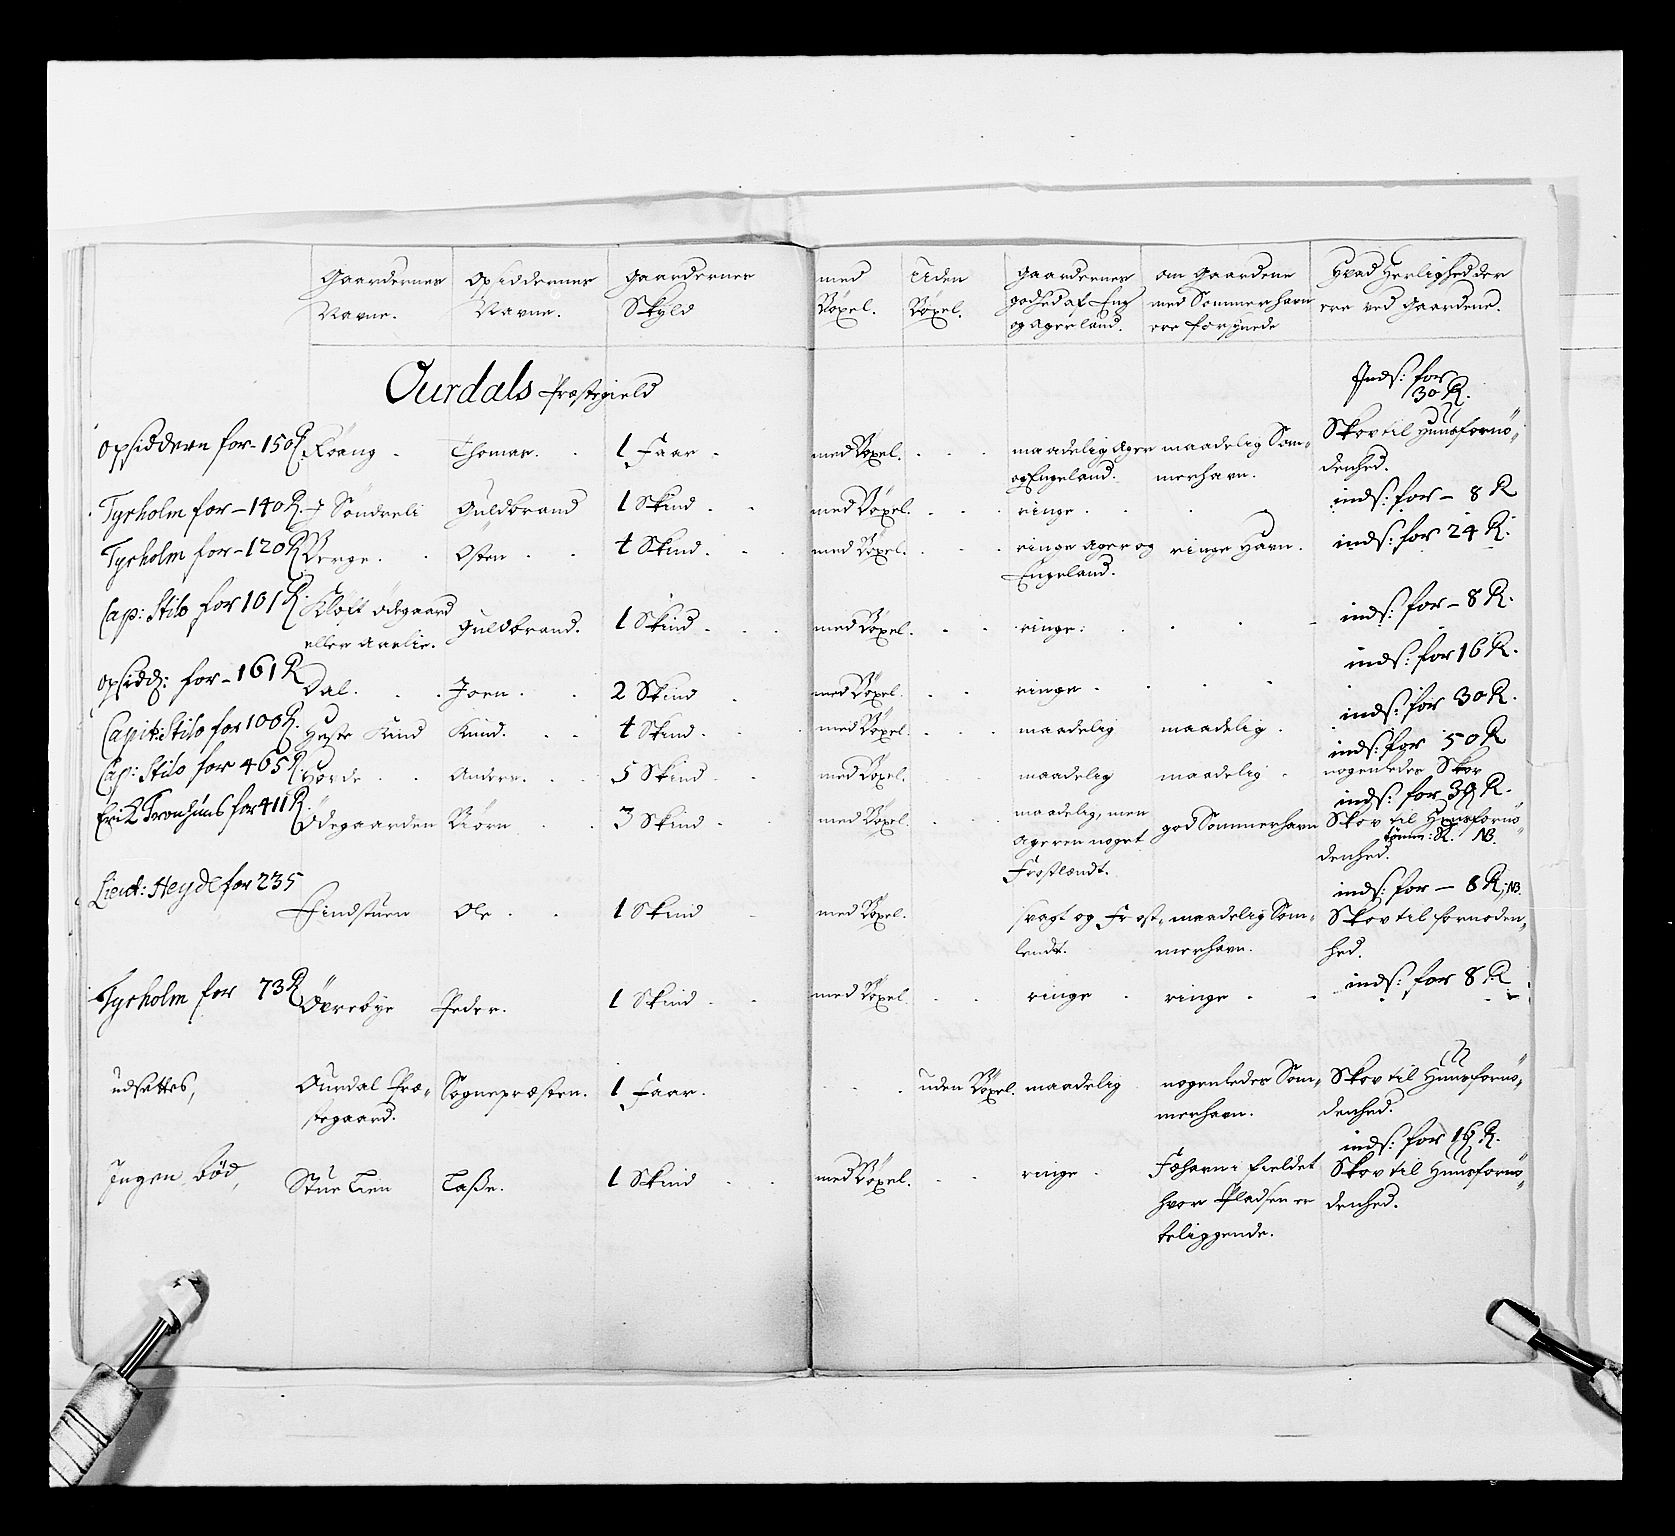 Gaardernes Navne. Opsiddernes Navne. Gaardernes Skyld med Böxel. Uden Böxel. gaardernes godhed af Eng og ager land. om Gaardene med Sommerhavn ere forsÿnede Hvad Herlighed der ere ved Gaardene.
Ourdals Præstegield
Inds: for 30 R.
opsiddern for - 150 R. Röang - Thomas. 1 Faar - med Böxel. maadelig Ager og Engeland. maadelig Som-merhavn. Skov til Huusfornö-denhed.
Tyrholm for - 140 R. Söndreli Guldbrand 1 Skind med Böxel. ringe inds: for - 8 R
Tyrholm for - 120 R Berge. Osten 1 Skind. med Böxel. ringe Ager og Engeland. ringe Havn. inds: for 24 R.
Cap: Stilo for 101 R. Kloft ödegaard eller Aaelie. Guldbrand. 1 Skind med Böxel. ringe: inds: for - 8 R.
opsidd: for - 161 R Dal. Joen. 2 Skind med Böxel. ringe inds: for 16 R.
Capit: Stilo for 100 R. Heste Kind Knud. 1 Skind. med Böxel. maadelig maadelig. inds: for 30 R.
Cap: Stilo for 465 R. Horde Anders. 5 Skind med Böxel. maadelig maadelig inds: for 50 R nogenledes Skov
Erik Tronhuus for 411 R. Ödegaarden Biörn 3 Skind med Böxel. maadelig, men Ageren noget Frostlændt. god Sommerhavn inds: for 39 R. Skov til Huusfornö-denhed. tömm: R. NB.
Lieut: Heyde for 235 Findstuen Ole 1 Skind med Böxel. svagt og Frost-lendt. maadelig Som-merhavn. inds: for - 8 R; NB. Skov til fornöden-hed.
Tyrholm for 73 R Öprebÿe Peder. 1 Skind med Böxel. ringe ringe inds: for 8 R
udsættes, Aurdal Præ-stegaard. Sognepræsten. 1 Faar. uden Böxel. maadelig nogenledes Som-merhavn. Skov til Huusfornö-denhed.
Ingen bød, Stue Lien Laße. 1 Skind med Böxel. ringe Fæhavn i Fieldet hvor Pladsen er beliggende. inds: for 16 R. Skov til Huusfornö-denhed.